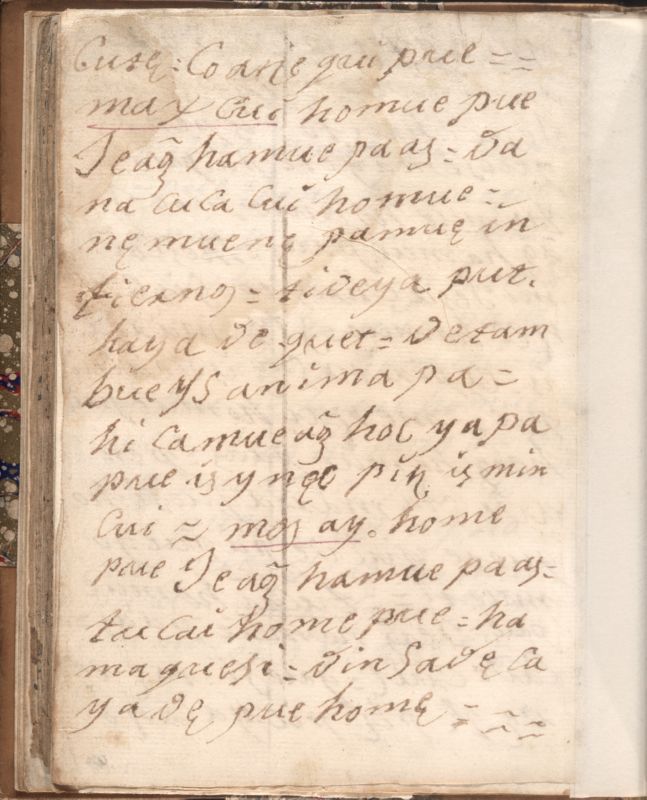 Cusę = Coanċ gui pue = =
max Cui homue pue
Jeag̃ hamue paas = va
na cuca Cui homue =
nęmuenę pamuę in
fiernos = tiveya put.
haya ve guet = vetam
bue ys anima pa =
hi camue ag̃ hoc yapa
pue is y nęc pin is min
cui = mos ay. home
pue Jeag̃ hamue paas =
tucui home pue = ha
maguesi = vin savę ca
yavę pue homę = ~ ~